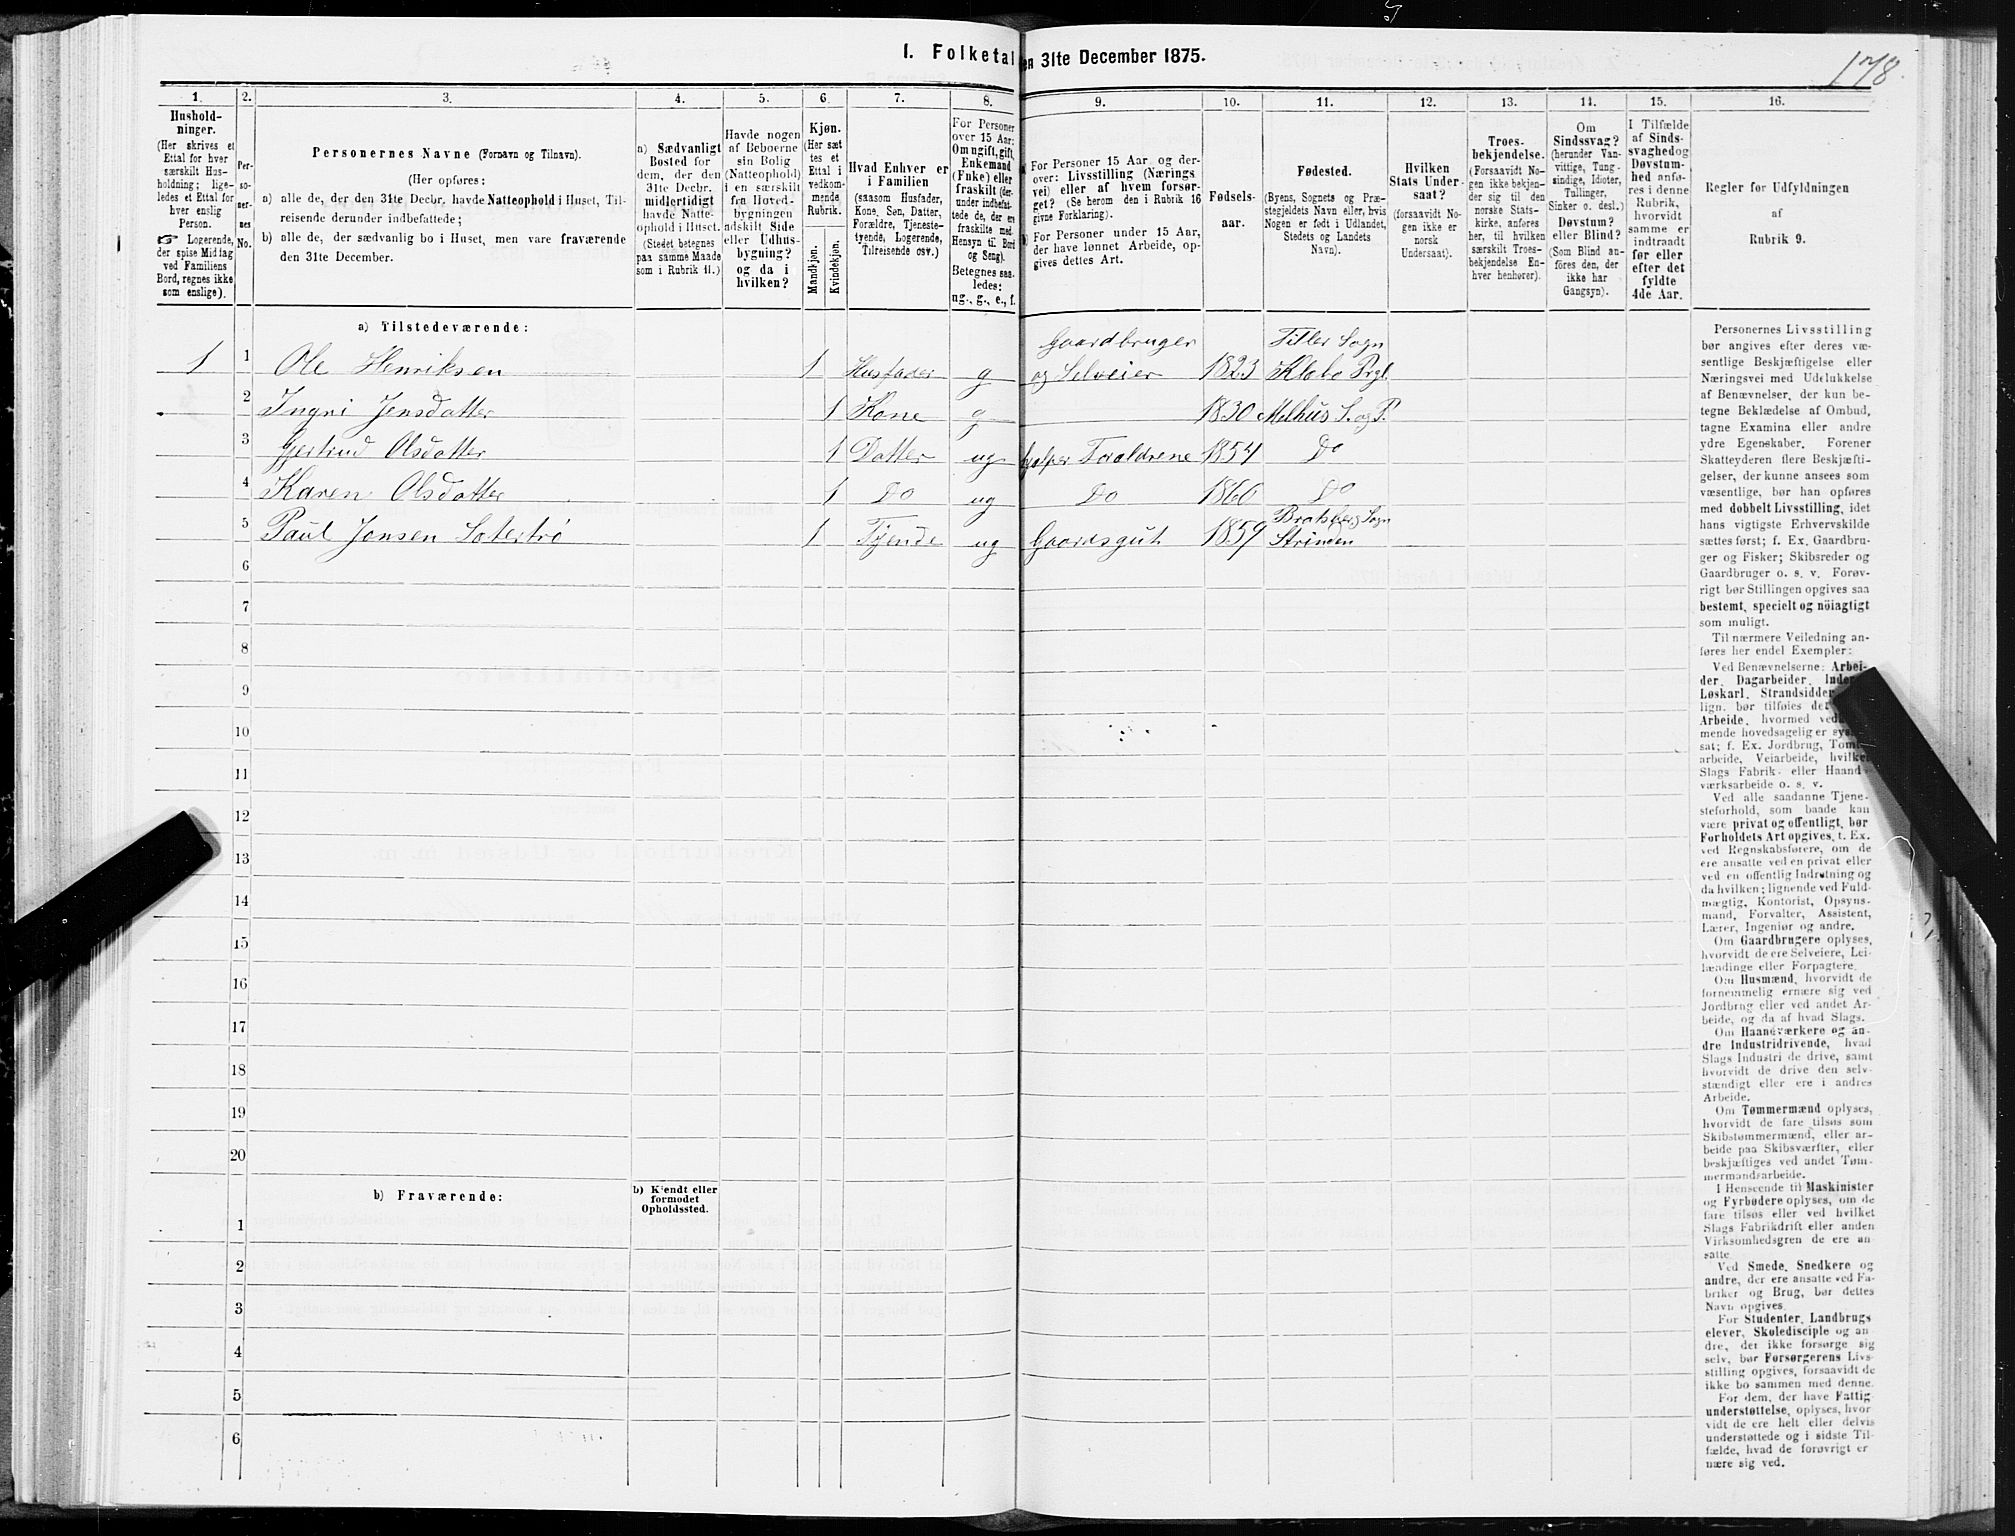 I. Folketal
en 31te December 1875.
178.
1.
2.
3.
4.
5.
6.
7.
8.
9.
10.
11.
12.
13.
14.
15.
16.
Hushold-
ninger.
(Her skrives et
Ettal for hver
særskilt Hus-
holdning; lige-
ledes et Ettal for
hver enslig
Person.
☞ Logerende,
der spise Middag
ved Familiens
Bord, regnes ikke
som enslige).
Per-
so-
ner-
nes
No.
Personernes Navne (Fornavn og Tilnavn).
(Her opføres:
a) alle de, der den 31te Decbr. havde Natteophold i Huset, Til-
reisende derunder indbefattede;
b) alle de, der sædvanlig bo i Huset, men vare fraværende
den 31te December.
a) Sædvanligt
Bosted for
dem, der den
31te Decbr.
midlertidigt
havde Natte-
ophold i Huset.
(Stedet betegnes
paa samme Maade
som i Rubrik 11.)
Havde nogen
af Beboerne
sin Bolig
(Natteophold)
i en særskilt
fra Hoved-
bygningen
adskilt Side
eller Udhus-
bygning?
og da i
hvilken?
Kjøn.
(Her sæt
tes et
Ettal i
vedkom-
mende
Rubrik.
Mandkjøn.
Kvindekjøn.
Hvad Enhver er
i Familien
(saasom Husfader,
Kone, Søn, Datter,
Forældre, Tjeneste-
tyende, Logerende,
Tilreisende osv.)
For Personer
over 15 Aar:
Om ugift, gift,
Enkemand
(Enke) eller
fraskilt (der-
under indbefat-
tede de, der ere
fraskilte med
Hensyn til Bord
og Seng).
Betegnes saa-
ledes:
ug., g., e., f.
For Personer 15 Aar og der-
over: Livsstilling (Nærings
vei) eller af hvem forsør-
get? (Se herom den i Rubrik 16
givne Forklaring).
For Personer under 15 Aar,
der have lønnet Arbeide, op-
gives dettes Art.
Fødsels-
aar.
Fødested.
(Byens, Sognets og Præ-
stegjeldets Navn eller, hvis
Nogen er født i Udlandet,
Stedets og Landets
Navn).
Hvilken
Stats Under-
saat?
(forsaavidt No-
gen ikke er
norsk
Undersaat).
Troes-
bekjendelse.
(Forsaavidt No-
gen ikke bekjen-
der sig til den
norske Stats-
kirke, anføres
her, til hvilken
særskilt Troes-
bekjendelse En-
hver henhører).
Om
Sindssvag?
(herunder Van-
vittige, Tung-
sindige, Idioter,
Tullinger,
Sinker o. desl.)
Døvstum?
eller Blind?
(Som Blind an-
føres den, der
ikke har
Gangsyn).
I Tilfælde
af Sinds-
svaghed og
Døvstum-
hed anfø-
res i denne
Rubrik,
hvorvidt
samme er
indtraadt
før eller
efter det
fyldte
4de Aar.
Regler før Udfyldningen
af
Rubrik 9.
a) Tilstedeværende:
Gaardbruger Tiller Sogn
1 1 Ole Henriksen 1 Husfader g og Selveier 1823 Klæbo Prgl.
2 Ingri Jensdatter 1 Kone g 1830 Melhus S. og P.
3 Gjertrud Olsdatter 1 Datter ug hjælper Forældrene 1854 Do
4 Karen Olsdatter 1 Do ug Do 1860 Do
Bratsberg Sogn
5 Paul Jonsen Sætertrø 1 Tjende ug Gaardsgut 1859 Strinden
6
7
8
9
10
11
12
13
14
15
16
17
18
19
20
b) Fraværende:
b) Kjendt eller
formodet
Opholdssted.
1
2
3
4
5
6
Personernes Livsstilling
bør angives efter deres væ-
sentlige Beskjæftigelse eller
Næringsvei med Udelukkelse
af Benævnelser, der kun be-
tegne Beklædelse af Ombud,
tagne Examina eller andre
ydre Egenskaber. Forener
Skatteyderen flere Beskjæfti-
gelser, der kunne ansees som
væsentlige, bør han opføres
med dobbelt Livsstilling, idet
hans vigtigste Erhvervskilde
sættes først; f. Ex. Gaardbru-
ger og Fisker; Skibsreder og
Gaardbruger o. s. v. Forøv-
rigt bør Stillingen opgives saa
bestemt, specielt og nöiagtigt
som muligt.
Til nærmere Veiledning an-
føres her endel Exempler:
Ved Benævnelserne: Arbei-
der, Dagarbeider, Inder
Løskarl, Strandsidder
lign. bør tilføies det
Arbeide, hvormed ved
mende hovedsagelig er sys
sat; f. Ex. Jordbrug, Tom
arbeide, Veiarbeide, hvilket
Slags Fabrik- eller Haand-
værksarbeide o. s. v.
Ved alle saadanne Tjene-
steforhold, som baade kan
være privat og offentligt, bør
Forholdets Art opgives, t. Ex.
ved Regnskabsførere, om de
ere ansatte ved en privat eller
ved en offentlig Indretning og
da hvilken; lignende ved Fuld-
mægtig, Kontorist, Opsyns-
mand, Forvalter, Assistent,
Lærer, Ingeniør og andre.
Om Gaardbrugere oplyses,
hvorvidt de ere Selveiere, Lei-
lændinge eller Forpagtere.
Om Husmænd, hvorvidt de
fornemmelig ernære sig ved
Jordbrug eller ved andet Ar-
beide, og da af hvad Slags.
Om Haandværkere og an-
dre Industridrivende, hvad
Slags Industri de drive, samt
hvorvidt de drive den selv-
stændigt eller ere i andres
Arbeide.
Om Tømmermænd oplyses,
hvorvidt de fare tilsøs som
Skibstømmermænd, eller ar-
beide paa Skibsværfter, eller
beskjæftiges ved andet Tøm-
mermandsarbeide.
I Henseende til Maskinister
og Fyrbødere oplyses, om de
fare tilsøs eller ved hvilket
Slags Fabrikdrift eller anden
Virksomhedsgren de ere an-
satte.
Ved Smede, Snedkere og
andre, der ere ansatte ved Fa-
briker og Brug, bør dettes
Navn opgives.
For Studenter, Landbrugs
elever, Skoledisciple og an-
dre, der ikke forsørge sig
selv, bør Forsørgerens Livs-
stilling opgives, forsaavidt de
ikke bo sammen med denne.
For dem, der have Fattig
understøttelse, oplyses, hvor
vidt de ere helt eller delvis
understøttede og i sidste Til-
fælde, hvad de forøvrigt er
nære sig ved.